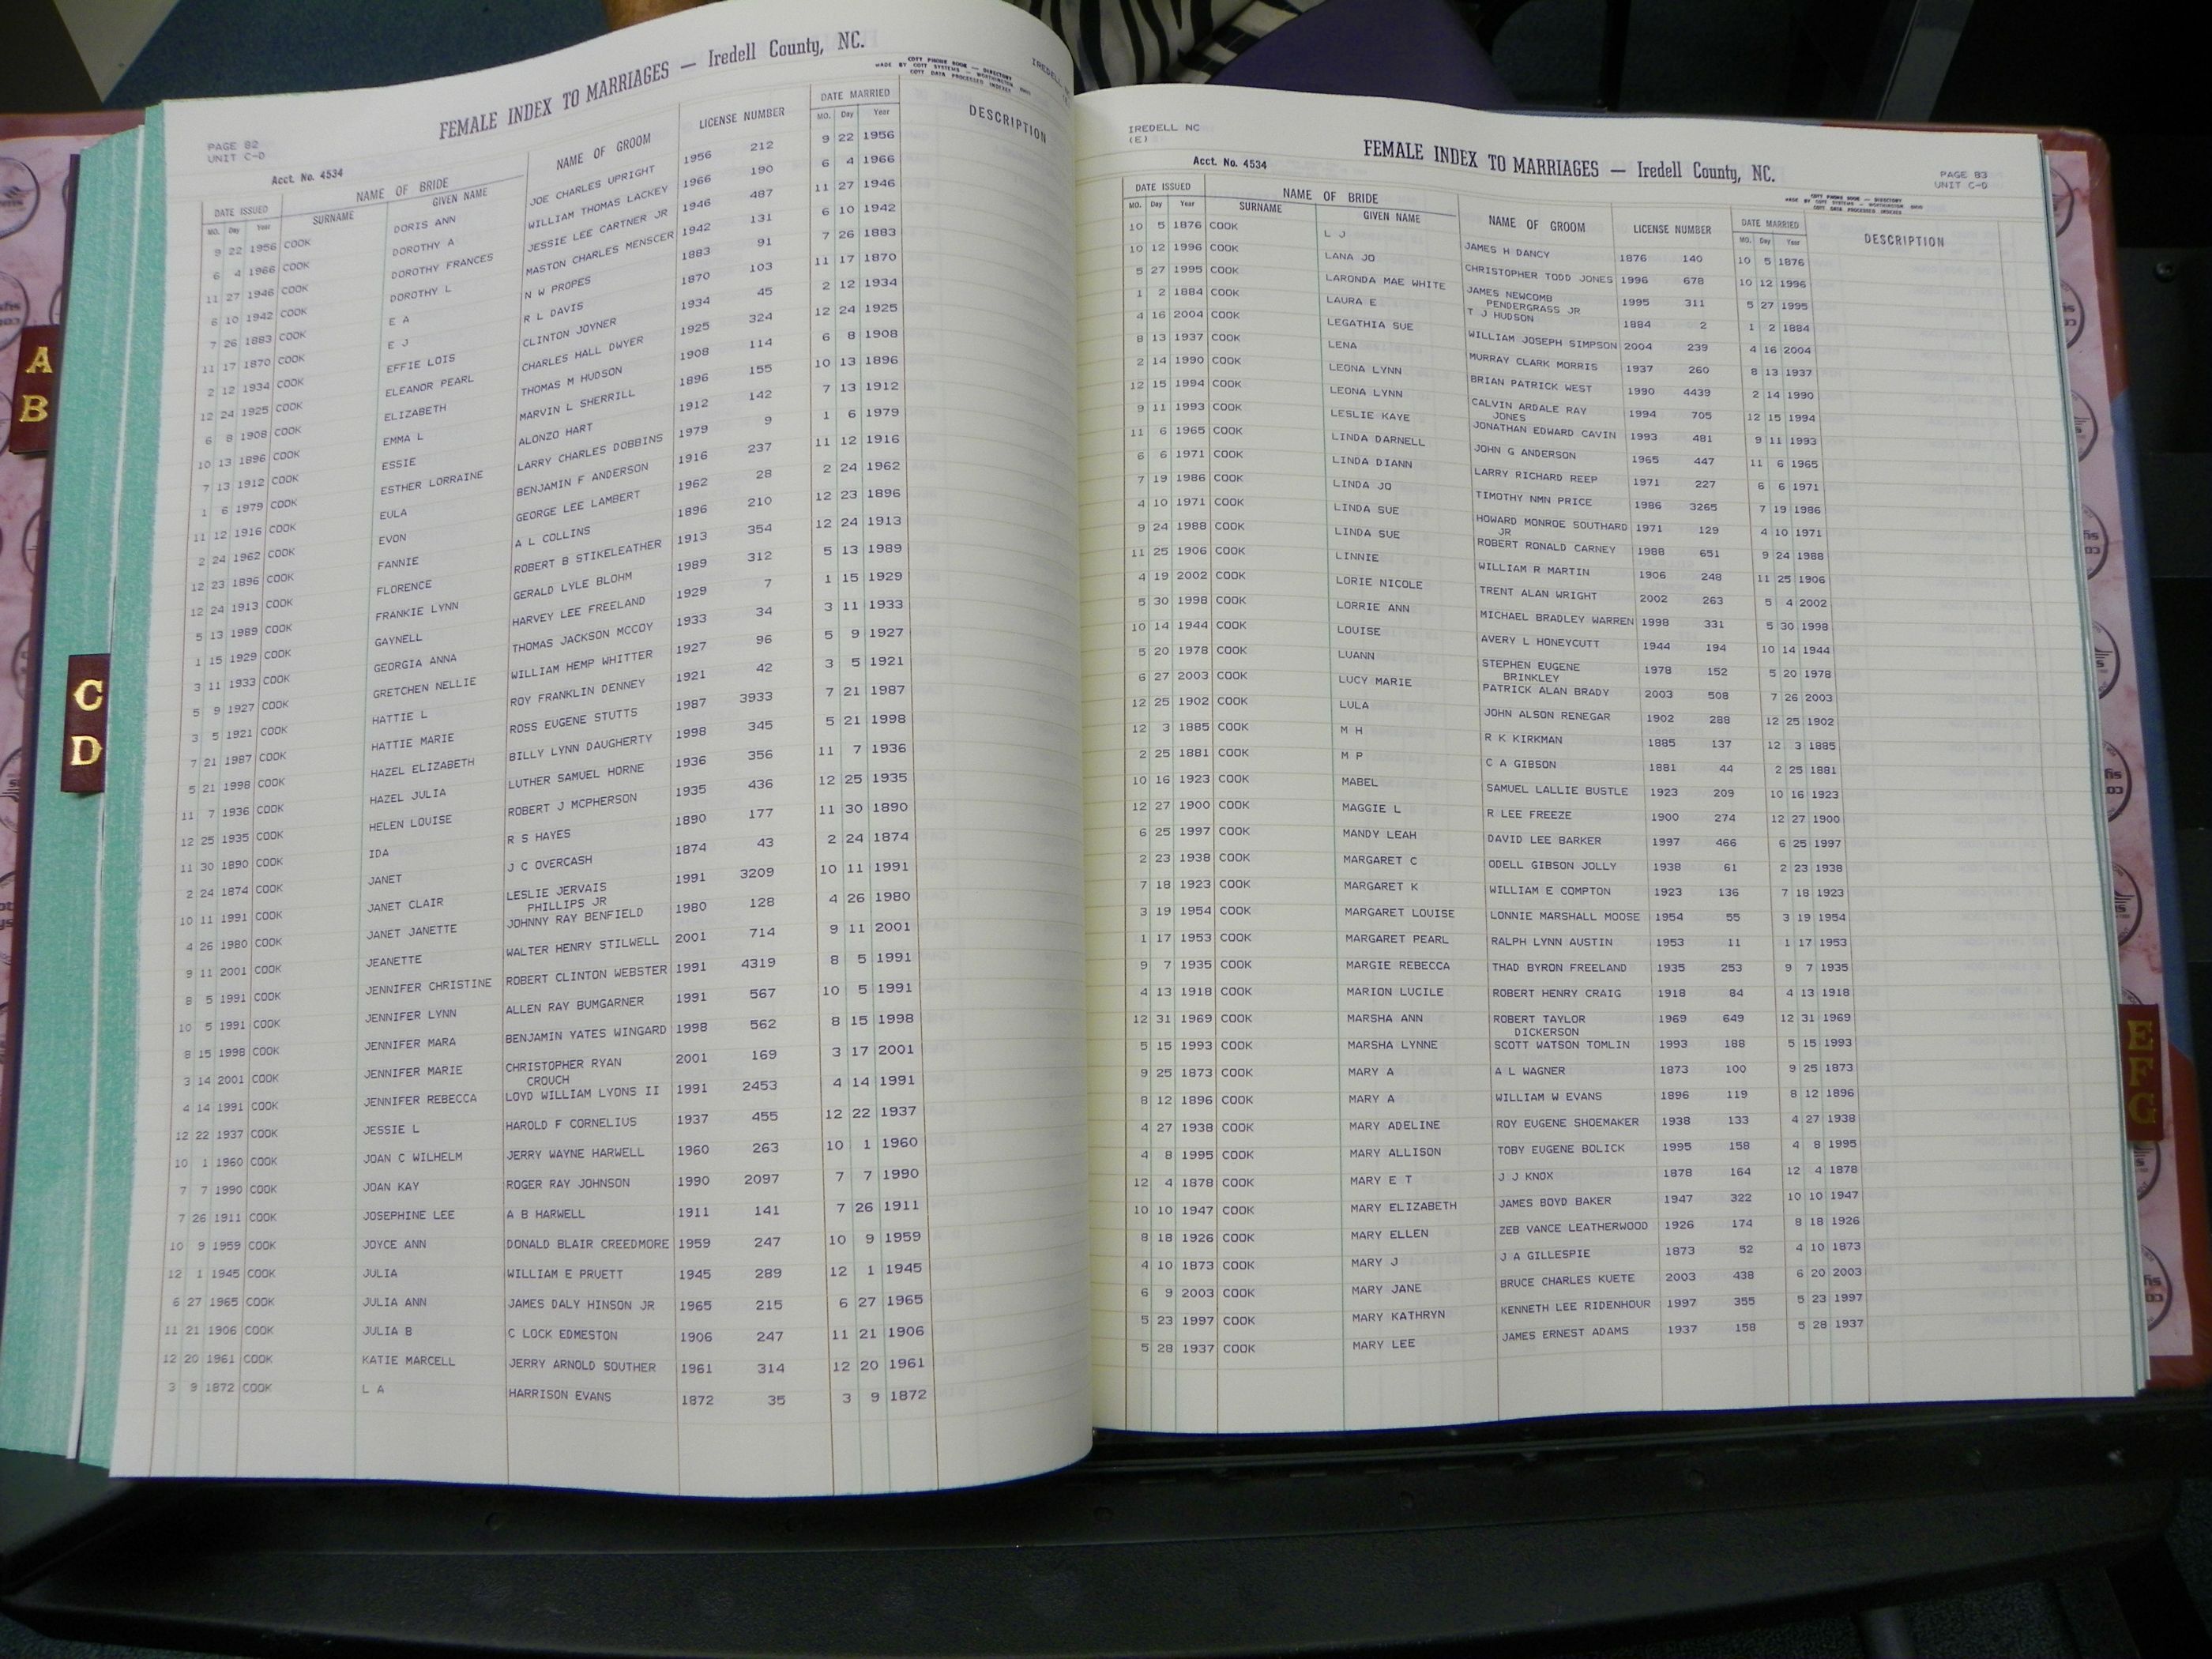 FEMALE INDEX TO MARRIAGES — Iredell County, NC.
COTT PHONE BOOK — DIRECTORY
MADE BY COTT SYSTEMS — WORTHINGTON OHIO
COTT DATA PROCESSED INDEXES
PAGE 82
UNIT C-D
Acct. No. 4534
DATE ISSUED NAME OF BRIDE NAME OF GROOM LICENSE NUMBER DATE MARRIED DESCRIPTION
MO. Day Year SURNAME GIVEN NAME MO. Day Year
9 22 1956 COOK DORIS ANN JOE CHARLES UPRIGHT 1956 212 9 22 1956
6 4 1966 COOK DOROTHY A WILLIAM THOMAS LACKEY 1966 190 6 4 1966
11 27 1946 COOK DOROTHY FRANCES JESSIE LEE CARTNER JR 1946 487 11 27 1946
6 10 1942 COOK DOROTHY L MASTON CHARLES MENSCER 1942 131 6 10 1942
7 26 1883 COOK E A N W PROPES 1883 91 7 26 1883
11 17 1870 COOK E J R L DAVIS 1870 103 11 17 1870
2 12 1934 COOK EFFIE LOIS CLINTON JOYNER 1934 45 2 12 1934
12 24 1925 COOK ELEANOR PEARL CHARLES HALL DWYER 1925 324 12 24 1925
6 8 1908 COOK ELIZABETH THOMAS M HUDSON 1908 114 6 8 1908
10 13 1896 COOK EMMA L MARVIN L SHERRILL 1896 155 10 13 1896
7 13 1912 COOK ESSIE ALONZO HART 1912 142 7 13 1912
1 6 1979 COOK ESTHER LORRAINE LARRY CHARLES DOBBINS 1979 9 1 6 1979
11 12 1916 COOK EULA BENJAMIN F ANDERSON 1916 237 11 12 1916
2 24 1962 COOK EVON GEORGE LEE LAMBERT 1962 28 2 24 1962
12 23 1896 COOK FANNIE A L COLLINS 1896 210 12 23 1896
12 24 1913 COOK FLORENCE ROBERT B STIKELEATHER 1913 354 12 24 1913
5 13 1989 COOK FRANKIE LYNN GERALD LYLE BLOHM 1989 312 5 13 1989
1 15 1929 COOK GAYNELL HARVEY LEE FREELAND 1929 7 1 15 1929
3 11 1933 COOK GEORGIA ANNA THOMAS JACKSON MCCOY 1933 34 3 11 1933
5 9 1927 COOK GRETCHEN NELLIE WILLIAM HEMP WHITTER 1927 96 5 9 1927
3 5 1921 COOK HATTIE L ROY FRANKLIN DENNEY 1921 42 3 5 1921
7 21 1987 COOK HATTIE MARIE ROSS EUGENE STUTTS 1987 3933 7 21 1987
5 21 1998 COOK HAZEL ELIZABETH BILLY LYNN DAUGHERTY 1998 345 5 21 1998
11 7 1936 COOK HAZEL JULIA LUTHER SAMUEL HORNE 1936 356 11 7 1936
12 25 1935 COOK HELEN LOUISE ROBERT J MCPHERSON 1935 436 12 25 1935
11 30 1890 COOK IDA R S HAYES 1890 177 11 30 1890
2 24 1874 COOK JANET J C OVERCASH 1874 43 2 24 1874
10 11 1991 COOK JANET CLAIR LESLIE JERVAIS 1991 3209 10 11 1991
PHILLIPS JR
4 26 1980 COOK JANET JANETTE JOHNNY RAY BENFIELD 1980 128 4 26 1980
9 11 2001 COOK JEANETTE WALTER HENRY STILWELL 2001 714 9 11 2001
8 5 1991 COOK JENNIFER CHRISTINE ROBERT CLINTON WEBSTER 1991 4319 8 5 1991
10 5 1991 COOK JENNIFER LYNN ALLEN RAY BUMGARNER 1991 567 10 5 1991
8 15 1998 COOK JENNIFER MARA BENJAMIN YATES WINGARD 1998 562 8 15 1998
3 14 2001 COOK JENNIFER MARIE CHRISTOPHER RYAN 2001 169 3 17 2001
CROUCH
4 14 1991 COOK JENNIFER REBECCA LOYD WILLIAM LYONS II 1991 2453 4 14 1991
12 22 1937 COOK JESSIE L HAROLD F CORNELIUS 1937 455 12 22 1937
10 1 1960 COOK JOAN C WILHELM JERRY WAYNE HARWELL 1960 263 10 1 1960
7 7 1990 COOK JOAN KAY ROGER RAY JOHNSON 1990 2097 7 7 1990
7 26 1911 COOK JOSEPHINE LEE A B HARWELL 1911 141 7 26 1911
10 9 1959 COOK JOYCE ANN DONALD BLAIR CREEDMORE 1959 247 10 9 1959
12 1 1945 COOK JULIA WILLIAM E PRUETT 1945 289 12 1 1945
6 27 1965 COOK JULIA ANN JAMES DALY HINSON JR 1965 215 6 27 1965
11 21 1906 COOK JULIA B C LOCK EDMESTON 1906 247 11 21 1906
12 20 1961 COOK KATIE MARCELL JERRY ARNOLD SOUTHER 1961 314 12 20 1961
3 9 1872 COOK L A HARRISON EVANS 1872 35 3 9 1872
A
B
C
D
IREDELL NC
(E)
Acct. No. 4534
FEMALE INDEX TO MARRIAGES — Iredell County, NC.
PAGE 83
UNIT C-D
COTT PHONE BOOK — DIRECTORY
MADE BY COTT SYSTEMS — WORTHINGTON OHIO
COTT DATA PROCESSED INDEXES
DATE ISSUED NAME OF BRIDE NAME OF GROOM LICENSE NUMBER DATE MARRIED DESCRIPTION
MO. Day Year SURNAME GIVEN NAME MO. Day Year
10 5 1876 COOK L J JAMES H DANCY 1876 140 10 5 1876
10 12 1996 COOK LANA JO CHRISTOPHER TODD JONES 1996 678 10 12 1996
5 27 1995 COOK LARONDA MAE WHITE JAMES NEWCOMB 1995 311 5 27 1995
PENDERGRASS JR
1 2 1884 COOK LAURA E T J HUDSON 1884 2 1 2 1884
4 16 2004 COOK LEGATHIA SUE WILLIAM JOSEPH SIMPSON 2004 239 4 16 2004
8 13 1937 COOK LENA MURRAY CLARK MORRIS 1937 260 8 13 1937
2 14 1990 COOK LEONA LYNN BRIAN PATRICK WEST 1990 4439 2 14 1990
12 15 1994 COOK LEONA LYNN CALVIN ARDALE RAY 1994 705 12 15 1994
JONES
9 11 1993 COOK LESLIE KAYE JONATHAN EDWARD CAVIN 1993 481 9 11 1993
11 6 1965 COOK LINDA DARNELL JOHN G ANDERSON 1965 447 11 6 1965
6 6 1971 COOK LINDA DIANN LARRY RICHARD REEP 1971 227 6 6 1971
7 19 1986 COOK LINDA JO TIMOTHY NMN PRICE 1986 3265 7 19 1986
4 10 1971 COOK LINDA SUE HOWARD MONROE SOUTHARD 1971 129 4 10 1971
JR
9 24 1988 COOK LINDA SUE ROBERT RONALD CARNEY 1988 651 9 24 1988
11 25 1906 COOK LINNIE WILLIAM R MARTIN 1906 248 11 25 1906
4 19 2002 COOK LORIE NICOLE TRENT ALAN WRIGHT 2002 263 5 4 2002
5 30 1998 COOK LORRIE ANN MICHAEL BRADLEY WARREN 1998 331 5 30 1998
10 14 1944 COOK LOUISE AVERY L HONEYCUTT 1944 194 10 14 1944
5 20 1978 COOK LUANN STEPHEN EUGENE 1978 152 5 20 1978
BRINKLEY
6 27 2003 COOK LUCY MARIE PATRICK ALAN BRADY 2003 508 7 26 2003
12 25 1902 COOK LULA JOHN ALSON RENEGAR 1902 288 12 25 1902
12 3 1885 COOK M H R K KIRKMAN 1885 137 12 3 1885
2 25 1881 COOK M P C A GIBSON 1881 44 2 25 1881
10 16 1923 COOK MABEL SAMUEL LALLIE BUSTLE 1923 209 10 16 1923
12 27 1900 COOK MAGGIE L R LEE FREEZE 1900 274 12 27 1900
6 25 1997 COOK MANDY LEAH DAVID LEE BARKER 1997 466 6 25 1997
2 23 1938 COOK MARGARET C ODELL GIBSON JOLLY 1938 61 2 23 1938
7 18 1923 COOK MARGARET K WILLIAM E COMPTON 1923 136 7 18 1923
3 19 1954 COOK MARGARET LOUISE LONNIE MARSHALL MOOSE 1954 55 3 19 1954
1 17 1953 COOK MARGARET PEARL RALPH LYNN AUSTIN 1953 11 1 17 1953
9 7 1935 COOK MARGIE REBECCA THAD BYRON FREELAND 1935 253 9 7 1935
4 13 1918 COOK MARION LUCILE ROBERT HENRY CRAIG 1918 84 4 13 1918
12 31 1969 COOK MARSHA ANN ROBERT TAYLOR 1969 649 12 31 1969
DICKERSON
5 15 1993 COOK MARSHA LYNNE SCOTT WATSON TOMLIN 1993 188 5 15 1993
9 25 1873 COOK MARY A A L WAGNER 1873 100 9 25 1873
8 12 1896 COOK MARY A WILLIAM W EVANS 1896 119 8 12 1896
4 27 1938 COOK MARY ADELINE ROY EUGENE SHOEMAKER 1938 133 4 27 1938
4 8 1995 COOK MARY ALLISON TOBY EUGENE BOLICK 1995 158 4 8 1995
12 4 1878 COOK MARY E T J J KNOX 1878 164 12 4 1878
10 10 1947 COOK MARY ELIZABETH JAMES BOYD BAKER 1947 322 10 10 1947
8 18 1926 COOK MARY ELLEN ZEB VANCE LEATHERWOOD 1926 174 8 18 1926
4 10 1873 COOK MARY J J A GILLESPIE 1873 52 4 10 1873
6 9 2003 COOK MARY JANE BRUCE CHARLES KUETE 2003 438 6 20 2003
5 23 1997 COOK MARY KATHRYN KENNETH LEE RIDENHOUR 1997 355 5 23 1997
5 28 1937 COOK MARY LEE JAMES ERNEST ADAMS 1937 158 5 28 1937
E
F
G